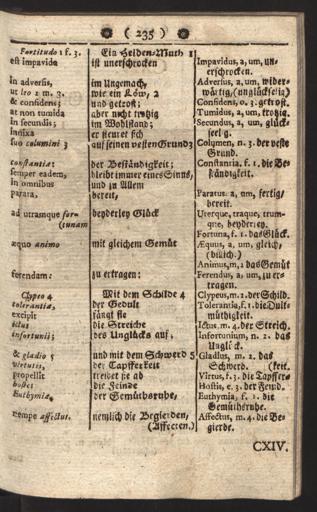 ( 235 )
Fortitudo 1 f. 3.
est impavida
in adversis,
ut leo 2 m. 3.
& confidens;
at non tumida
in secundis;
innixa
suo columini 3
constantiæ:
semper eadem,
in omnibus
parata,
ad utramque for-
(tunam
æquo animo
ferendam:
Clypeo 4
tolerantiæ,
excipit
ictus
infortunii;
& gladio 5
virtutis,
propellit
hostes
Euthymiæ,
nempe affectus.
Ein Helden-Muth 1
ist unerschrocken
im Ungemach,
wie ein Löw, 2
und getrost;
aber nicht trotzig
im Wohlstand;
er steuret sich
auf seinen vesten Grund 3
der Beständigkeit;
bleibt immer eines Sinns,
und zu Allem
bereit,
beyderley Glück
mit gleichem Gemüt
zu ertragen:
Mit dem Schilde 4
der Gedult
fängt sie
die Streiche
des Unglücks auf,
und mit dem Schwerd 5
der Tapfferkeit
treibet sie ab
die Feinde
der Gemütsruhe,
nemlich die Begierden,
(Affecten.)
Impavidus, a, um, un-
erschrocken.
Adversus, a, um, wider-
wärtig/(unglückselig)
Confidens, o. 3. getrost.
Tumidus, a, um, trotzig.
Secundus, a, um, glück-
seelig.
Columen, n. 3. der veste
Grund.
Constantia, f. 1. die Be-
ständigkeit.
Paratus, a, um, fertig/
bereit.
Uterque, traque, trum-
que, beyderley.
Fortuna, f. 1. das Glück.
Æquus, a, um, gleich,
(billich.)
Animus, m, 2 das Gemüt
Ferendus, a, um, zu er-
tragen.
Clypeus, m. 2. der Schild.
Tolerantia, f. 1. die Dult-
mütigkeit.
Ictus, m. 4. der Streich.
Infortunium, n. 2. das
Unglück.
Gladius, m 2. das
Schwerd. (keit.
Virtus, f. 3. die Tapffer-
Hostis, c 3. der Feind.
Euthymia, f. 1. die
Gemütsruhe.
Affectus, m. 4. die Be-
gierde.
CXIV.